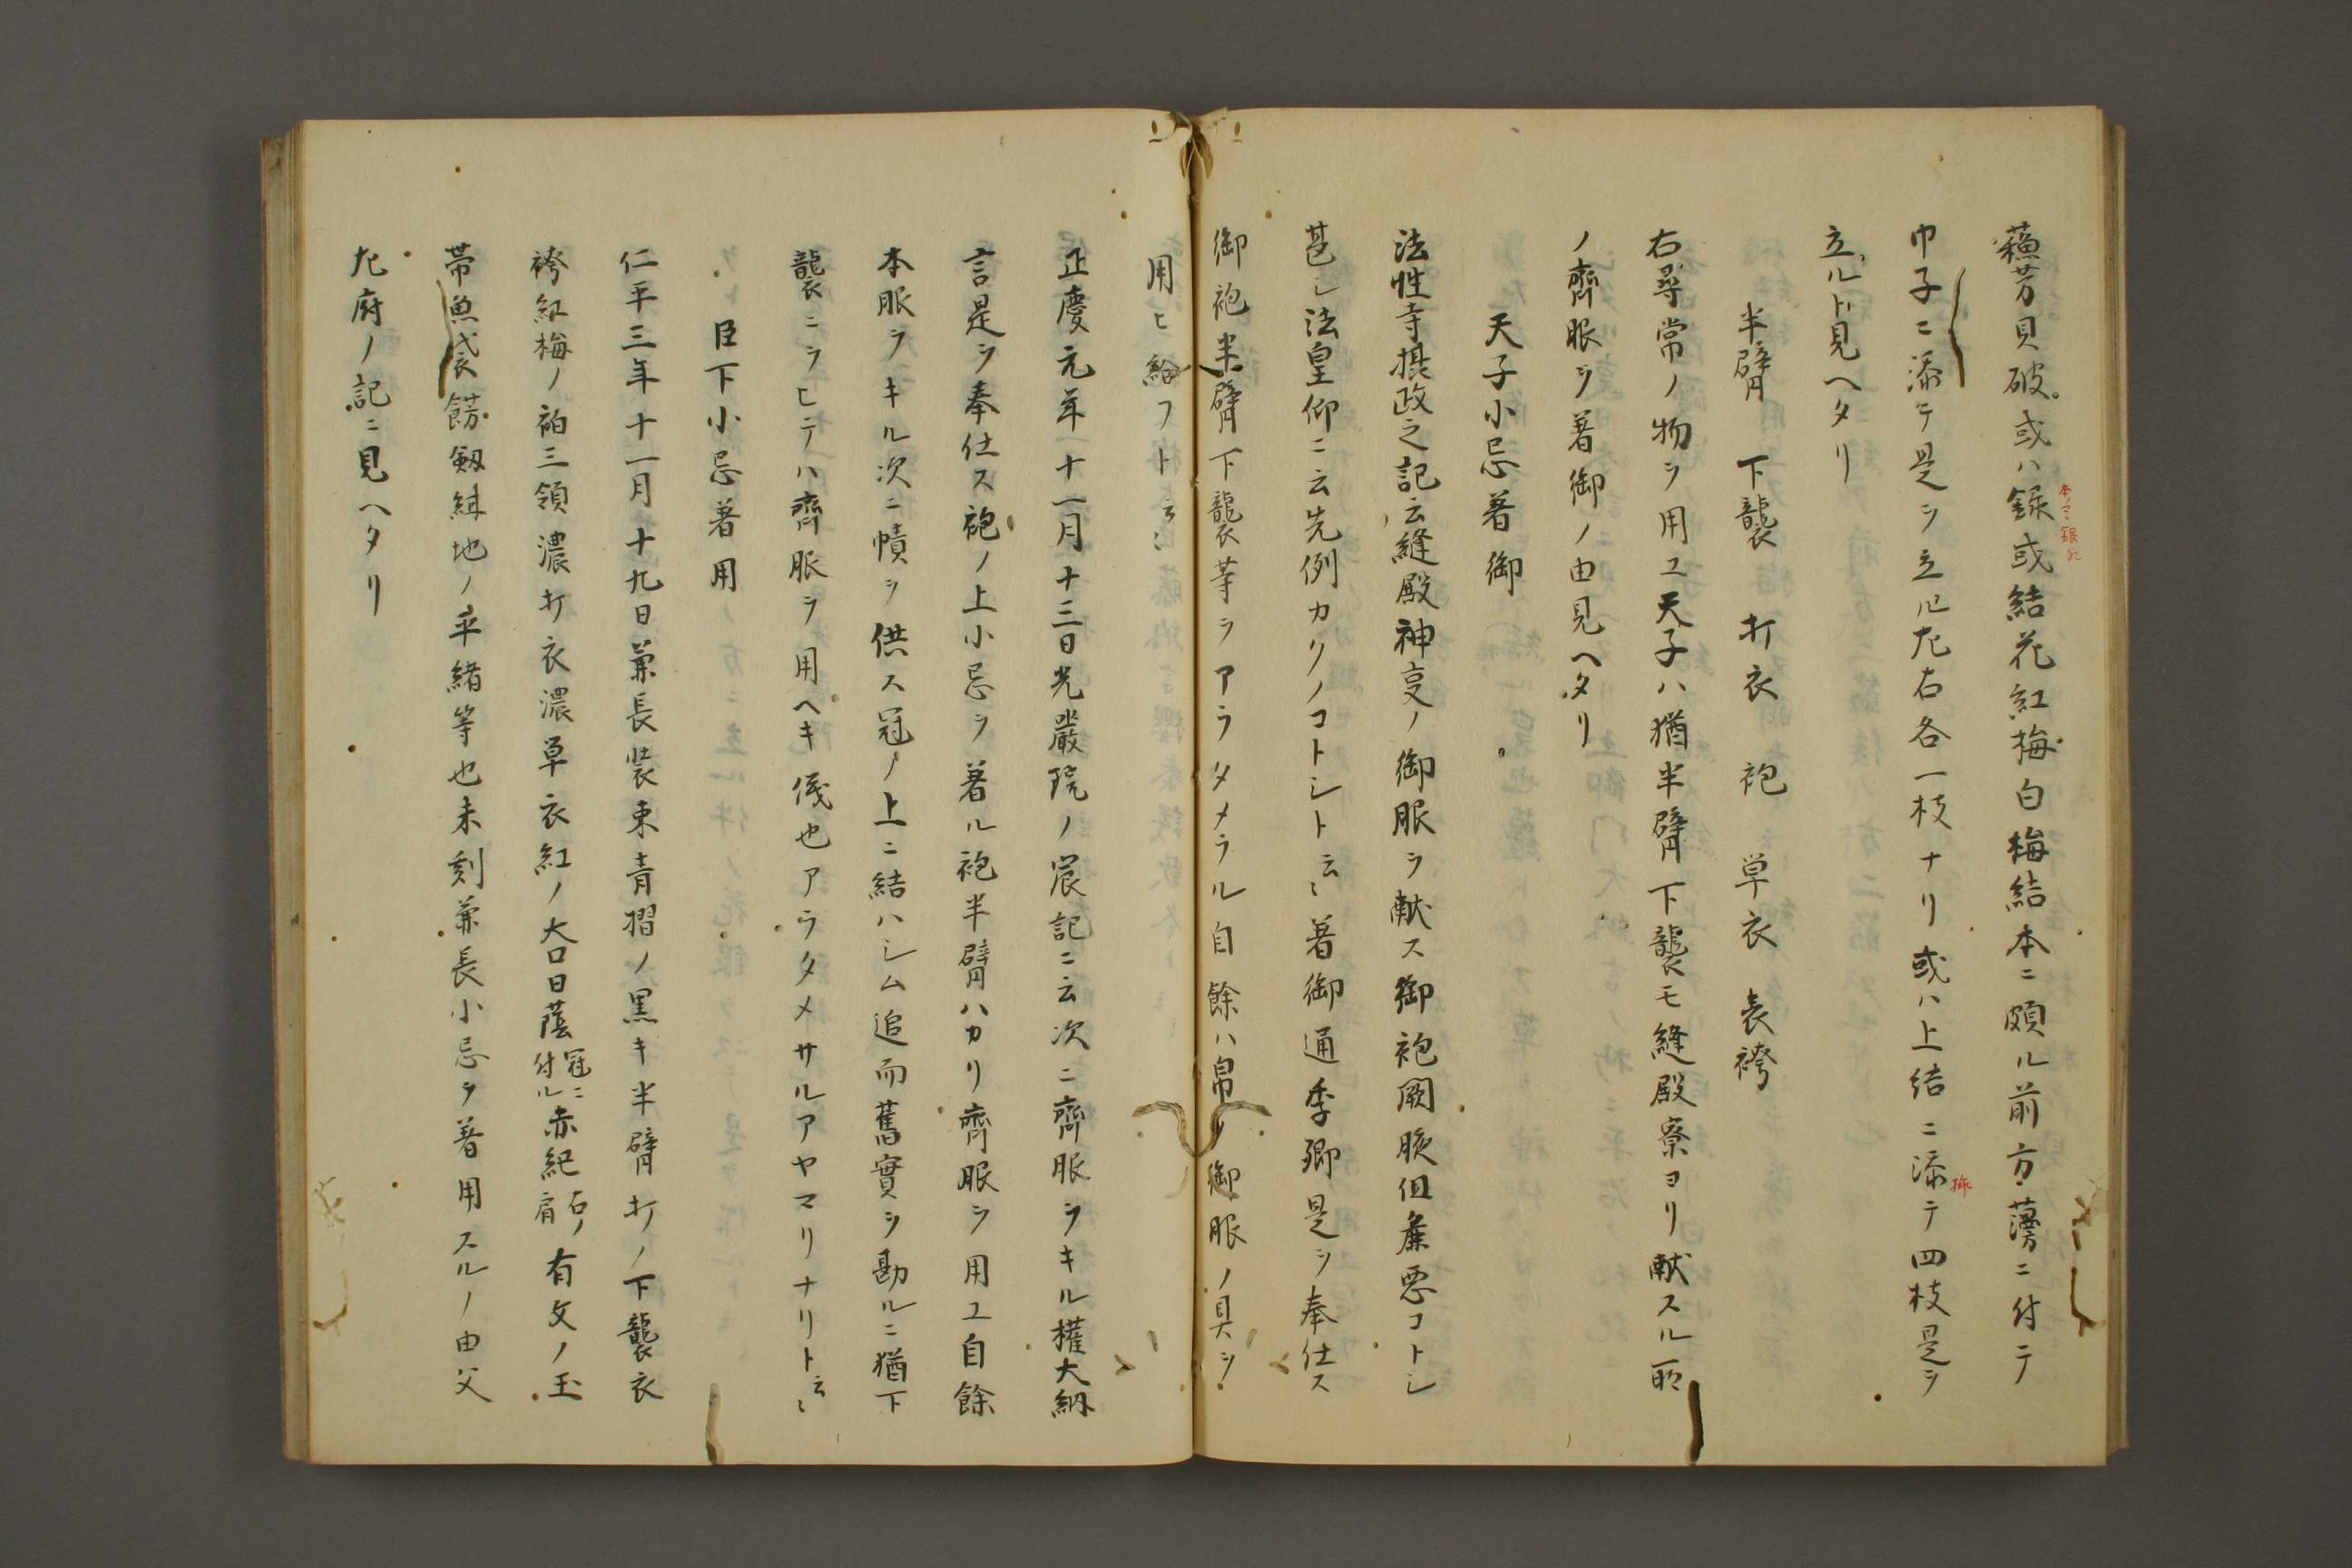 蘓芳貝破或ハ録或結花紅梅白梅結本ニ頗ル前方薄ニ付テ
本ノマヽ銀カ
巾子ニ添テ是ヲ立ル左右各一枝ナリ或ハ上結ニ添テ四枝是ヲ
立ルト見ヘタリ
半臂 下襲 打衣 袍 単衣 表袴
右尋常ノ物ヲ用ユ天子ハ猶半臂下襲モ縫殿寮ヨリ献スル所
ノ齊服ヲ著御ノ由見ヘタリ
天子小忌著御
法性寺摂政之記云縫殿神亨ノ御服ヲ献ス御袍闕腋但麁悪コトシ
甚シ法皇仰ニ云先例カクノコトシト云〻著御通季卿是ヲ奉仕ス
御袍半臂下襲等ヲアラタメラル自餘ハ帛ノ御服ノ具ヲ
用ヒ給フト云〻
正慶元年十一月十三日光嚴院ノ宸記ニ云次ニ齊服ヲキル權大納
言是ヲ奉仕ス袍ノ上小忌ヲ著ル袍半臂ハカリ齊服ヲ用ユ自餘
本服ヲキル次ニ幘ヲ供ス冠ノ上ニ結ハシム追而舊實ヲ勘ルニ猶下
襲ニヲヒテハ齊服ヲ用ヘキ儀也アラタメサルアヤマリナリト云〻
臣下小忌著用
仁平三年十一月十九日兼長装束青摺ノ黒キ半臂打ノ下襲衣
袴紅梅ノ袙三領濃打衣濃単衣紅ノ大口日蔭冠ニ付ル赤紀右ノ肩有文ノ玉
帯魚袋餝剱緂地ノ平緒等也未刻兼長小忌ヲ著用スルノ由父
左府ノ記ニ見ヘタリ